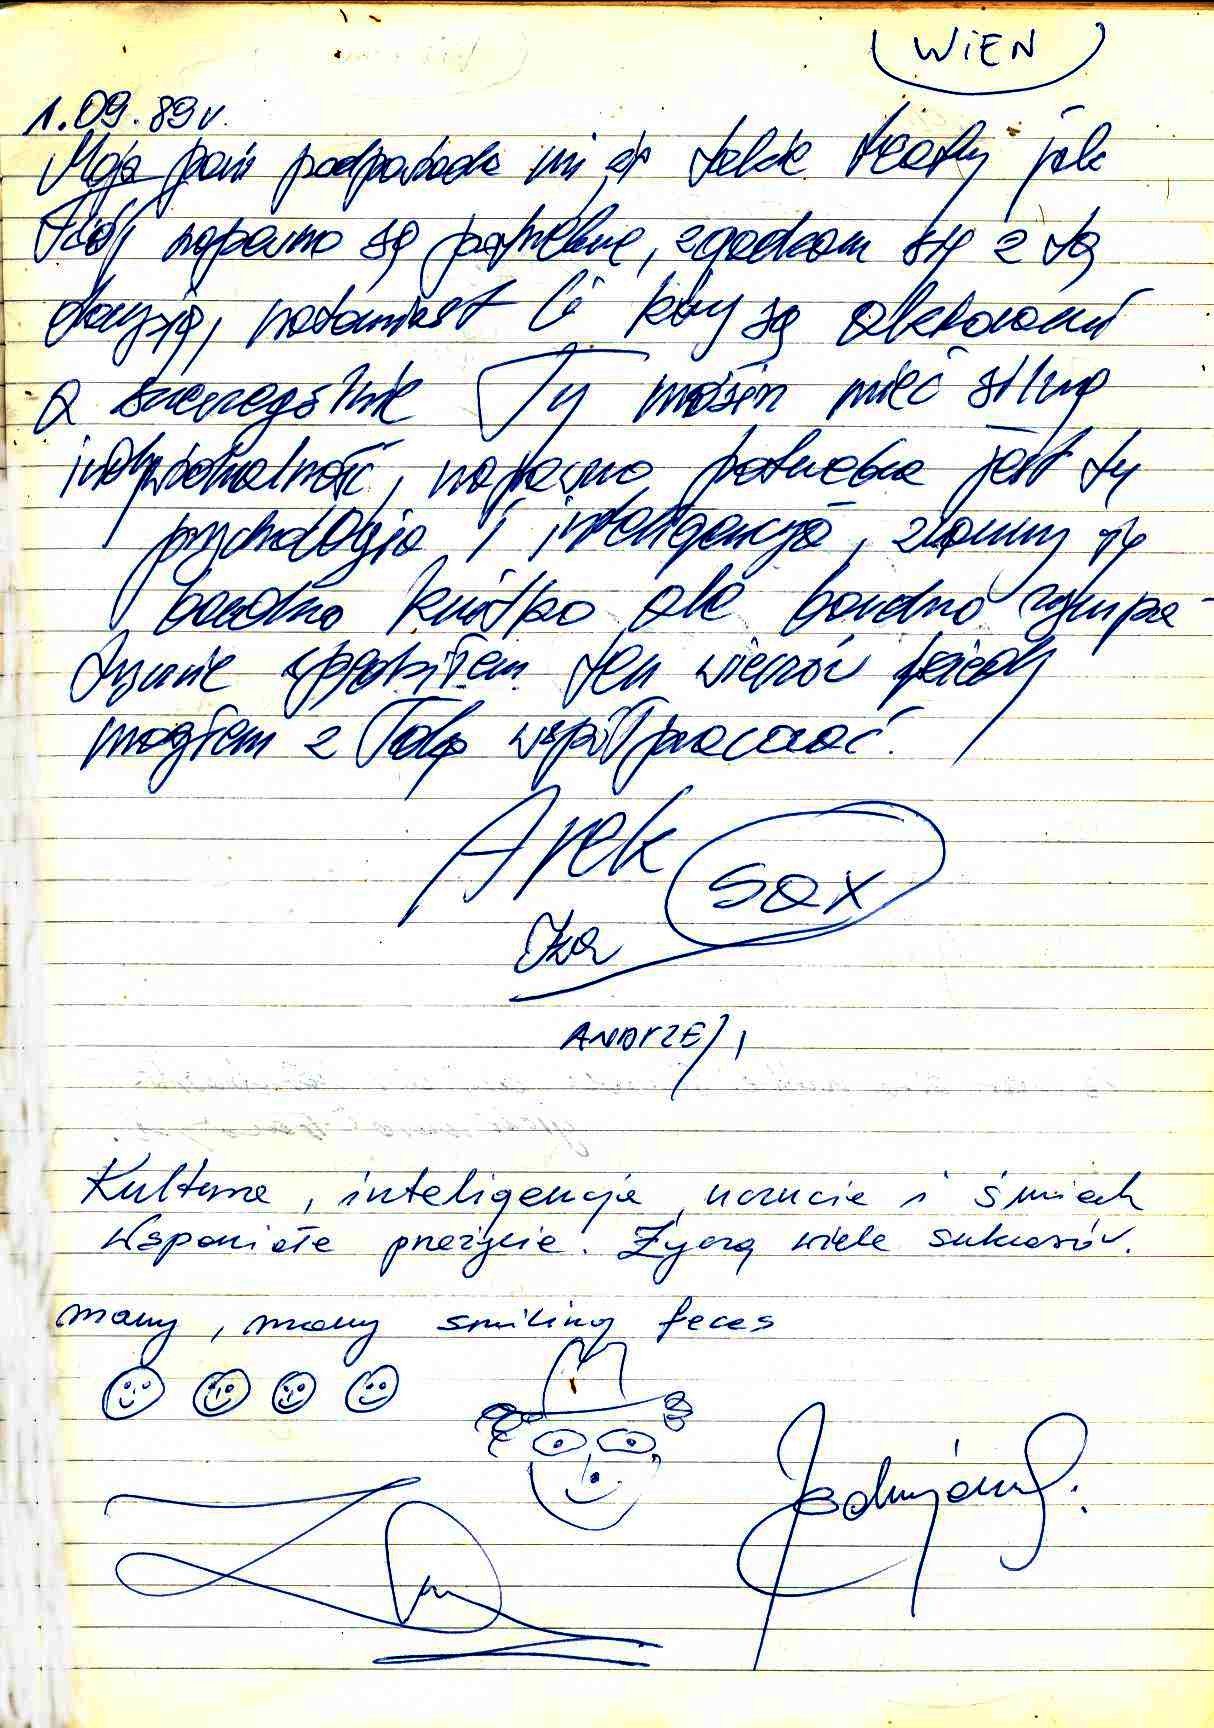 WiEN
1.09.89r.
Moja pani podpowiada mi że takie teatry jak
Twój napewno są potrzebne, zgadzam się z tą
decyzją, natomiast Ci którzy są aktorami
a szczególnie Ty musisz mieć silną
indywidualność, napewno potrzebna jest tu
psychologia i inteligencja, znamy się
bardzo krótko ale bardzo sympa-
tycznie spędziłem ten wieczór kiedy
mogłem z Tobą współpracować.
Arek SAX
Iza
ANDRZEJ
Kultura, inteligencja, uczucie i śmiech
Wspaniałe przeżycie. Życzę wiele sukcesów.
many, many smiling feces